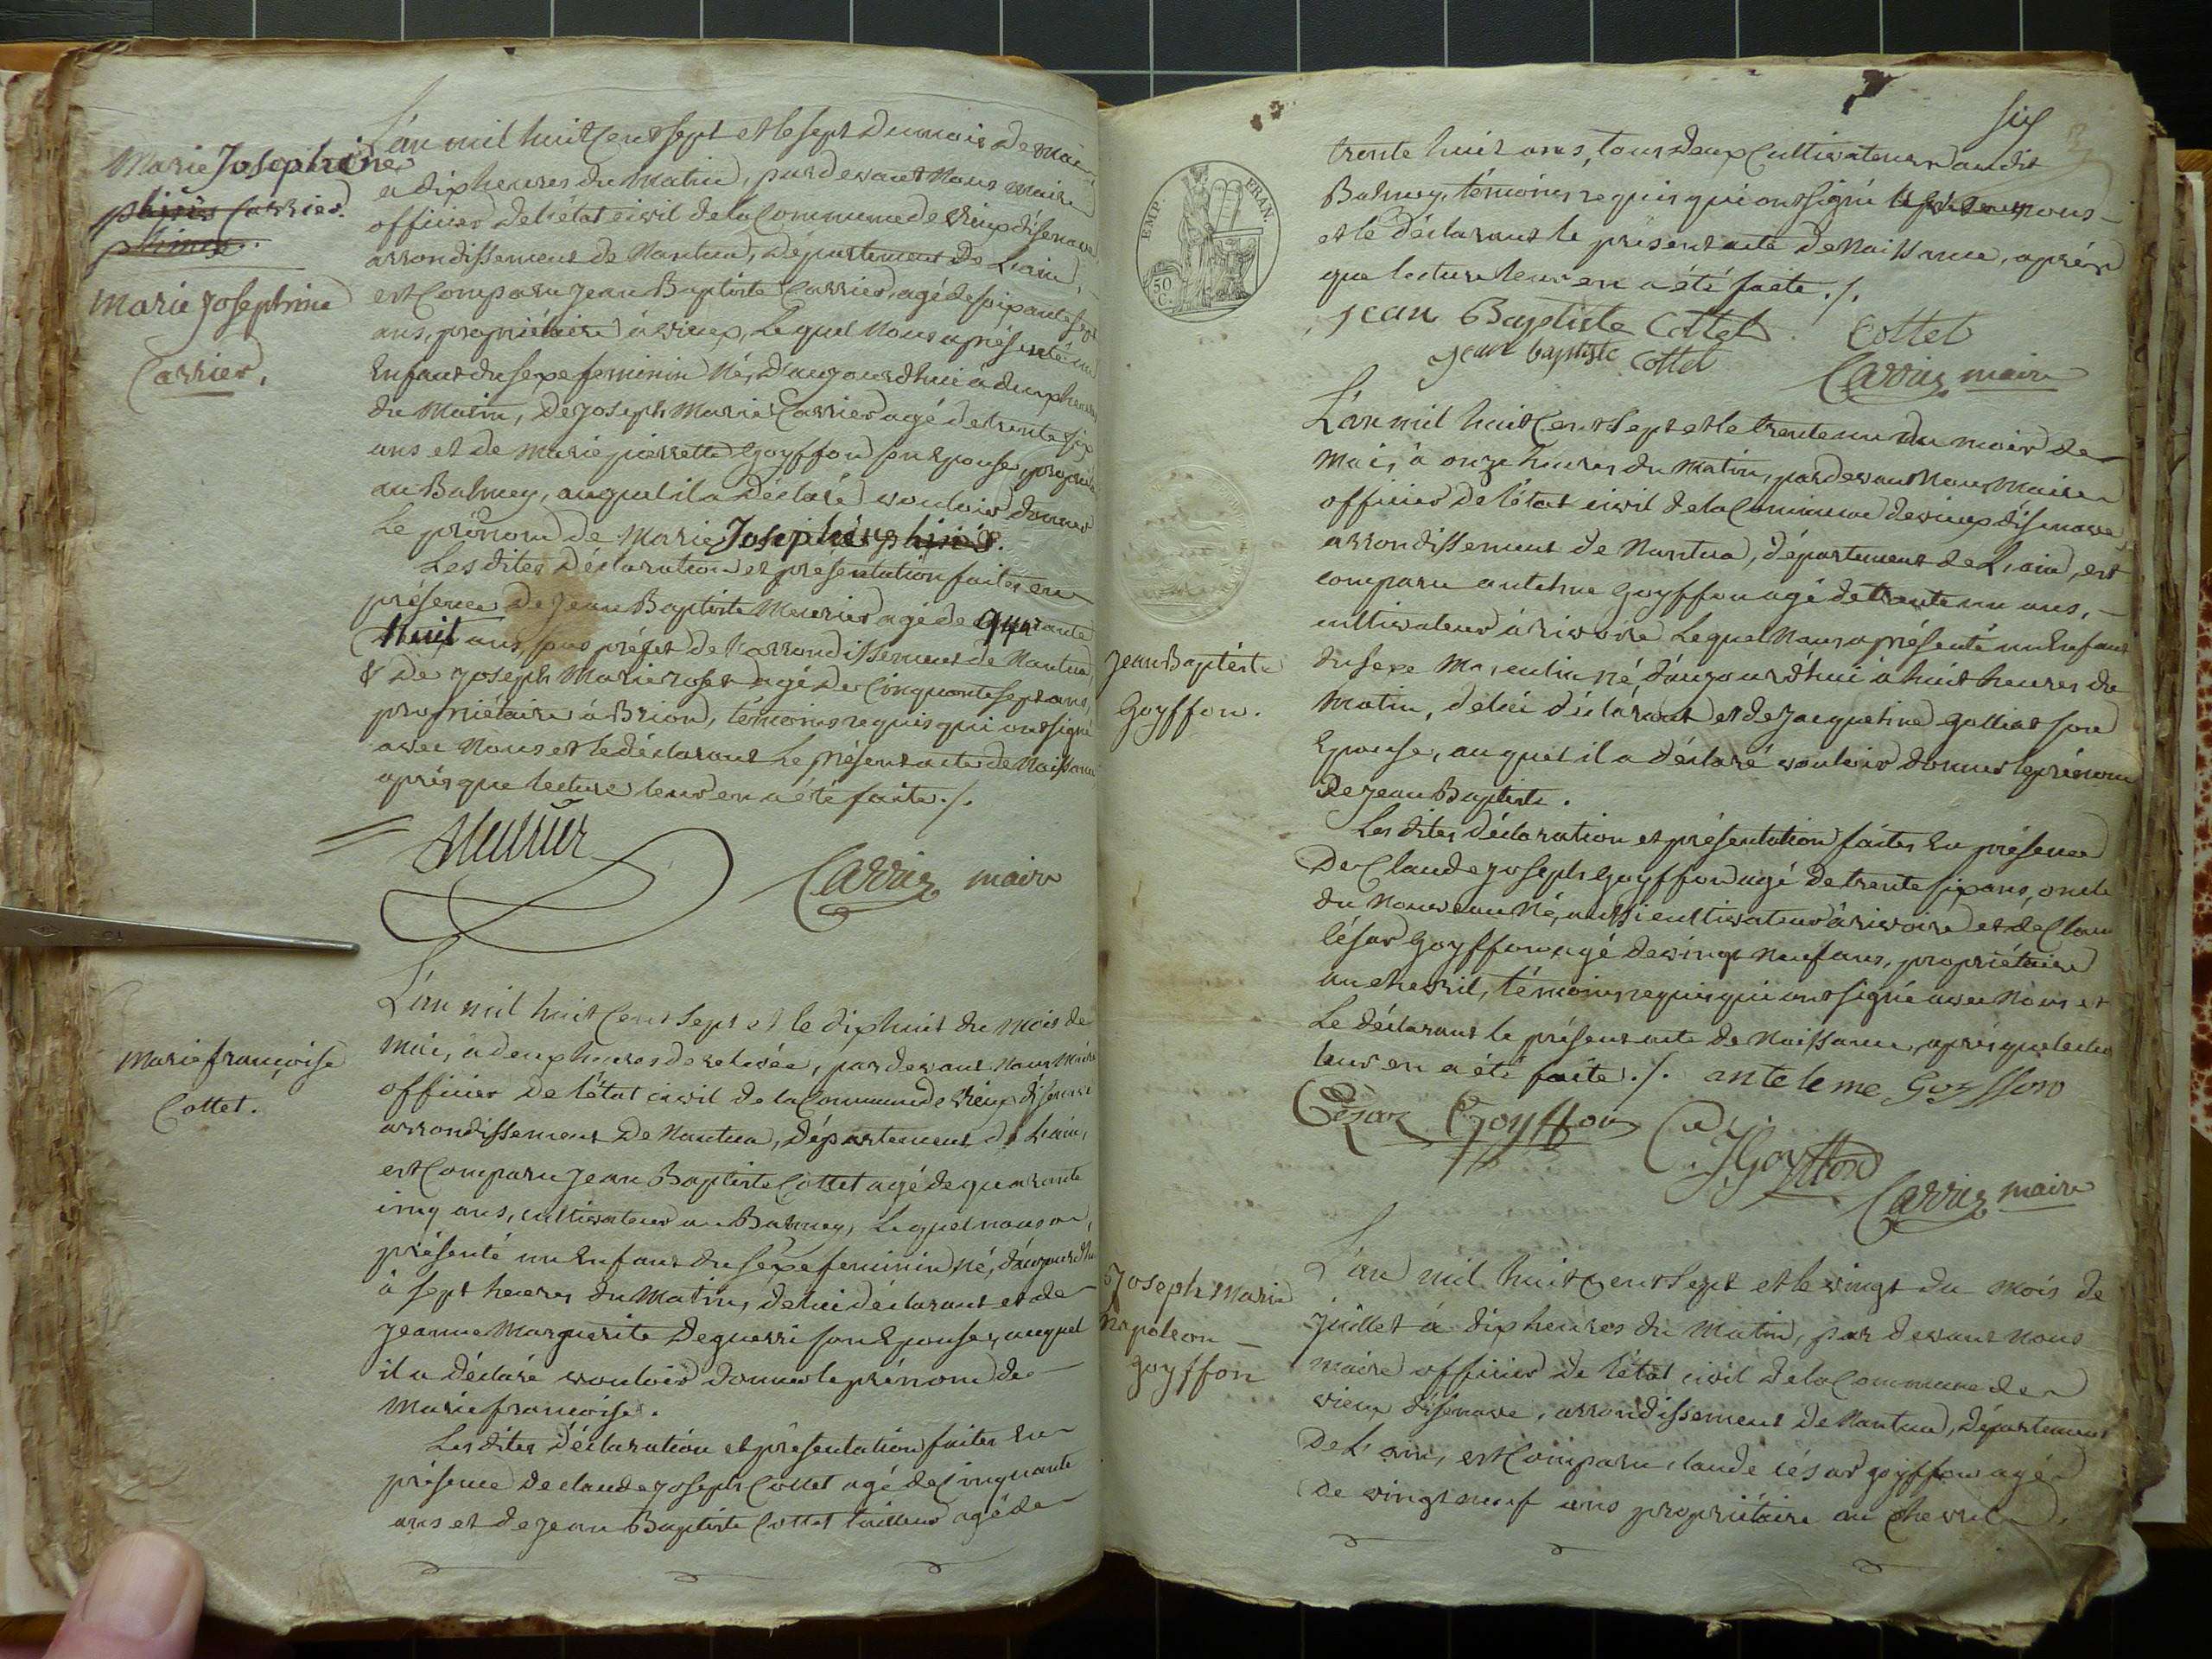 Marie Josephine
phinis Carrier.
phinise..
Marie Josephine
Carrier.
L'an mil huit Cent sept et le sept du mois de Mai
a dix heures du Matin, pardevant Nous Maire
officier de l'état civil de la Commune de Vieux disenave
arrondissement de Nantua, département de L'ain,
est Comparu Jean Baptiste Carrier, agé de soixante sept
ans, propriétaire à vieux, Lequel Nous a présenté un
Enfant du sexe feminin Né, d'aujourdhui à deux heures
du Matin, de Joseph Marie Carrier agé de trente six
ans et de Marie pierrette Goyffon son Epouse, propriét
au Balmey, auquel il a déclaré vouloir donner
Le prénom de Marie Joséphine
Les dites Déclaration et présentation faites en
présence de Jean Baptiste Meurier agé de quarante
huit ans, sous préfet de l'arrondissement de Nantua,
& de Joseph Marie roset agé de Cinquante sept ans,
propriétaire à Brion, témoins requis qui ont signé
avec Nous et le déclarant Le présent acte de Naissance
après que lecture leur en a été faite ./.
Meurier
Carrier maire
Marie françoise
Cottet.
L'an mil huit Cent sept et le dix huit du Mois de
Mai, a deux heures de relevée, pardevant Nous Maire
officier de l'état civil de la Commune de Vieux disenave
arrondissement de Nantua, département de L'ain,
est Comparu Jean Baptiste Cottet agé de quarante
cinq ans, cultivateur au Balmey, Lequel nous a
présenté un Enfant du sexe feminin né, d'aujourdhui
à sept heures du Matin, de lui déclarant et de
Jeanne Marguerite Deguerri son Epouse, auquel
il a déclaré vouloir donner le prénom de
Marie françoise.
Les dites Déclaration et présentation faites En
présence de claude Joseph Cottet agé de Cinquante
ans et de Jean Baptiste Cottet tailleur agé de
six
EMP. FRAN.
50 C.
trente huit ans, tous deux Cultivateurs audit
Balmey, témoins requis qui ont signé nous
et le déclarant le présent acte de Naissance, après
que lecture leur en a été faite ./.
jean Baptiste Cottet Cottet
jean baptiste Cottet
Carrier maire
Jean Baptiste
Goyffon.
L'an mil huit Cent sept et le trente un du mois de
Mai, à onze heures du Matin, pardevant Nous Maire
officier de l'état civil de la Commune de vieux disenave,
arrondissement de Nantua, département de L'ain, est
comparu antelme Goyffon agé de trente un ans,
cultivateur à rivoire Lequel Nous a présenté un Enfant
du sexe Masculin né, d'aujourdhui à huit heures du
Matin, de lui déclarant et de Jacqueline Golliat son
Epouse, auquel il a déclaré vouloir donner le prénom
de Jean Baptiste.
Les dites déclaration et présentation faites En présence
De Claude Joseph Goyffon agé de trente six ans, oncle
du Nouveau Né, aussi cultivateur à rivoire et de Claude
César Goyffon agé de vingt neuf ans, propriétaire
au chevril, témoins requis qui ont signé avec Nous et
Le déclarant le présent acte de Naissance, après que lectur
leur en a été faite ./. antelme Goyffon
César Goyffon
J Goyffon
Carrier maire
Joseph Marie
Napoleon
goyffon
L'an mil huit Cent sept et le vingt du mois de
Juillet à dix heures du Matin, par devant nous
maire officier de l'état civil de la Commune de
vieux disenave, arrondissement de Nantua, département
De L'ain, est Comparu claude césar goyffon agé
de vingt neuf ans propriétaire au chevril